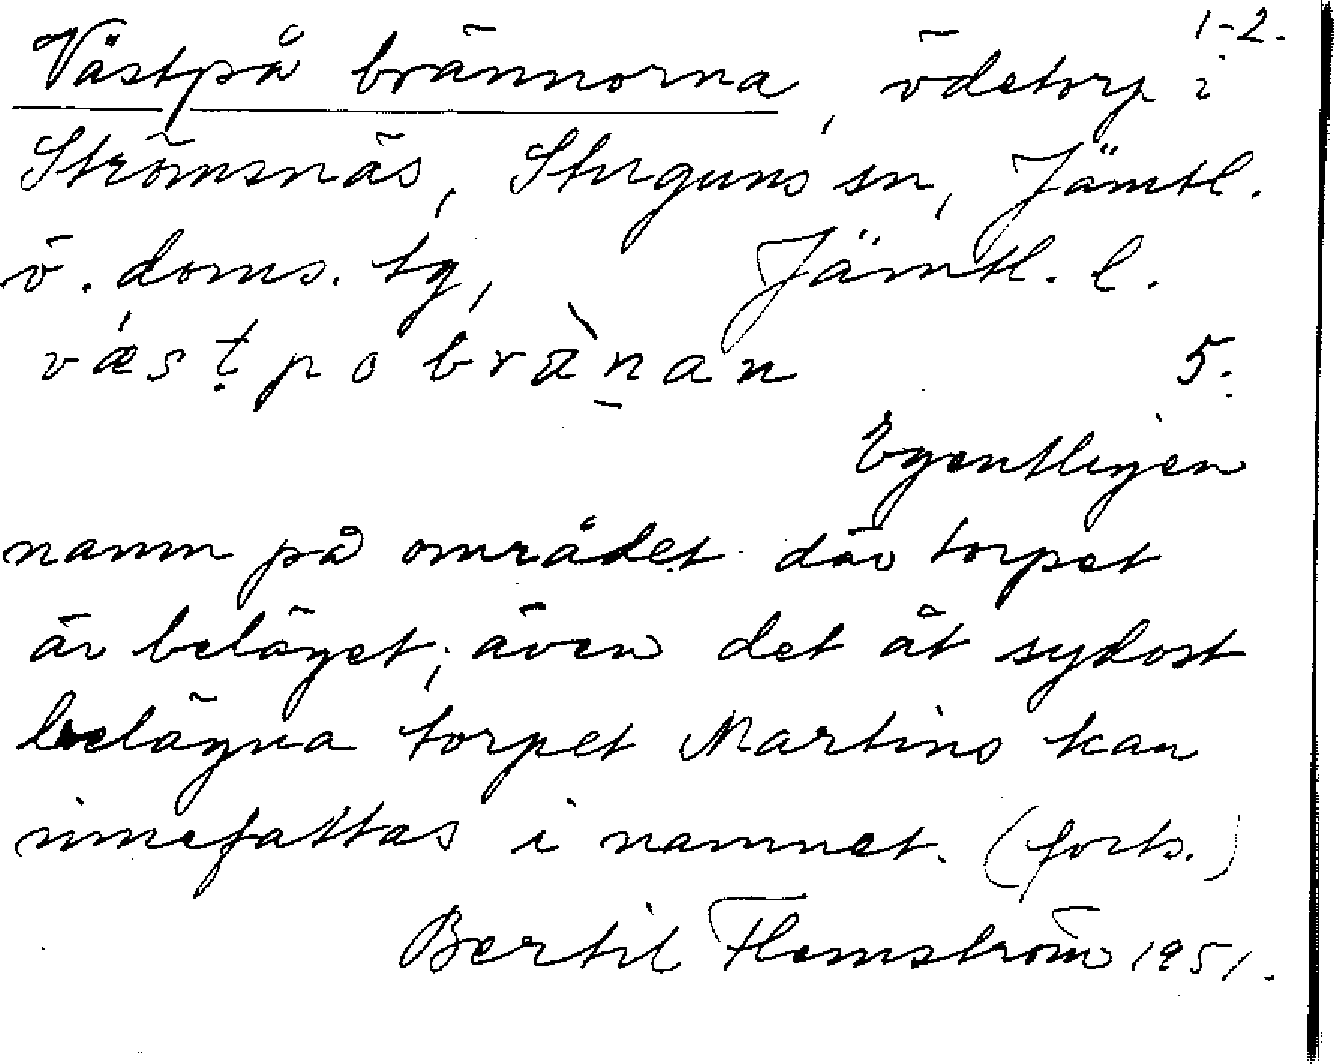 1-2.
Västpå brännorna, ödetorp i
Strömsnäs, Stuguns sn, Jämtl.
ö. doms. tg, Jämtl. l.
væstpobrànan 5.
Egentligen
namn på området där torpet
är beläget; även det åt sydost
belägna torpet Martins kan
innefattas i namnet. (forts.)
Bertil Flemström 1951.